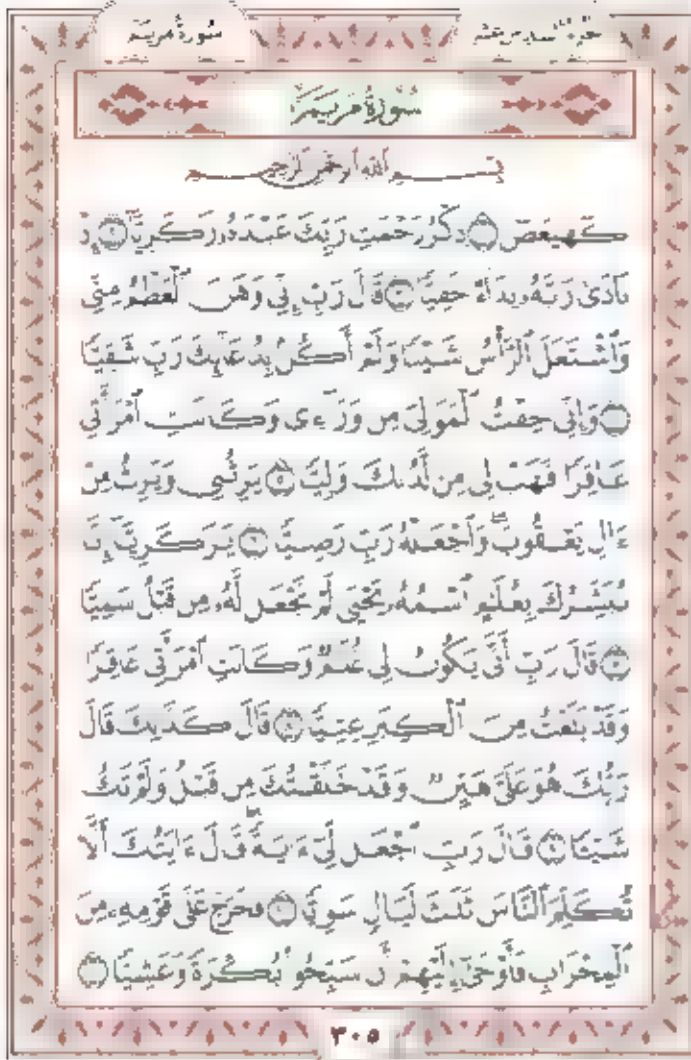 سورة مريم
الجزء السادس عشر
سُورَةُ مَرْيَمَ
بِسْمِ اللَّهِ الرَّحْمَٰنِ الرَّحِيمِ
كٓهيعٓصٓ ١ ذِكْرُ رَحْمَتِ رَبِّكَ عَبْدَهُۥ زَكَرِيَّآ ٢ إِذْ
نَادَىٰ رَبَّهُۥ نِدَآءً خَفِيًّا ٣ قَالَ رَبِّ إِنِّى وَهَنَ ٱلْعَظْمُ مِنِّى
وَٱشْتَعَلَ ٱلرَّأْسُ شَيْبًا وَلَمْ أَكُنۢ بِدُعَآئِكَ رَبِّ شَقِيًّا
٤ وَإِنِّى خِفْتُ ٱلْمَوَٰلِىَ مِن وَرَآءِى وَكَانَتِ ٱمْرَأَتِى
عَاقِرًا فَهَبْ لِى مِن لَّدُنكَ وَلِيًّا ٥ يَرِثُنِى وَيَرِثُ مِنْ
ءَالِ يَعْقُوبَ ۖ وَٱجْعَلْهُ رَبِّ رَضِيًّا ٦ يَٰزَكَرِيَّآ إِنَّا
نُبَشِّرُكَ بِغُلَٰمٍ ٱسْمُهُۥ يَحْيَىٰ لَمْ نَجْعَل لَّهُۥ مِن قَبْلُ سَمِيًّا
٧ قَالَ رَبِّ أَنَّىٰ يَكُونُ لِى غُلَٰمٌ وَكَانَتِ ٱمْرَأَتِى عَاقِرًا
وَقَدْ بَلَغْتُ مِنَ ٱلْكِبَرِ عِتِيًّا ٨ قَالَ كَذَٰلِكَ قَالَ
رَبُّكَ هُوَ عَلَىَّ هَيِّنٌ وَقَدْ خَلَقْتُكَ مِن قَبْلُ وَلَمْ تَكُ
شَيْـًٔا ٩ قَالَ رَبِّ ٱجْعَل لِّىٓ ءَايَةً ۚ قَالَ ءَايَتُكَ أَلَّا
تُكَلِّمَ ٱلنَّاسَ ثَلَٰثَ لَيَالٍ سَوِيًّا ١٠ فَخَرَجَ عَلَىٰ قَوْمِهِۦ مِنَ
ٱلْمِحْرَابِ فَأَوْحَىٰٓ إِلَيْهِمْ أَن سَبِّحُوا۟ بُكْرَةً وَعَشِيًّا ١١
٣٠٥